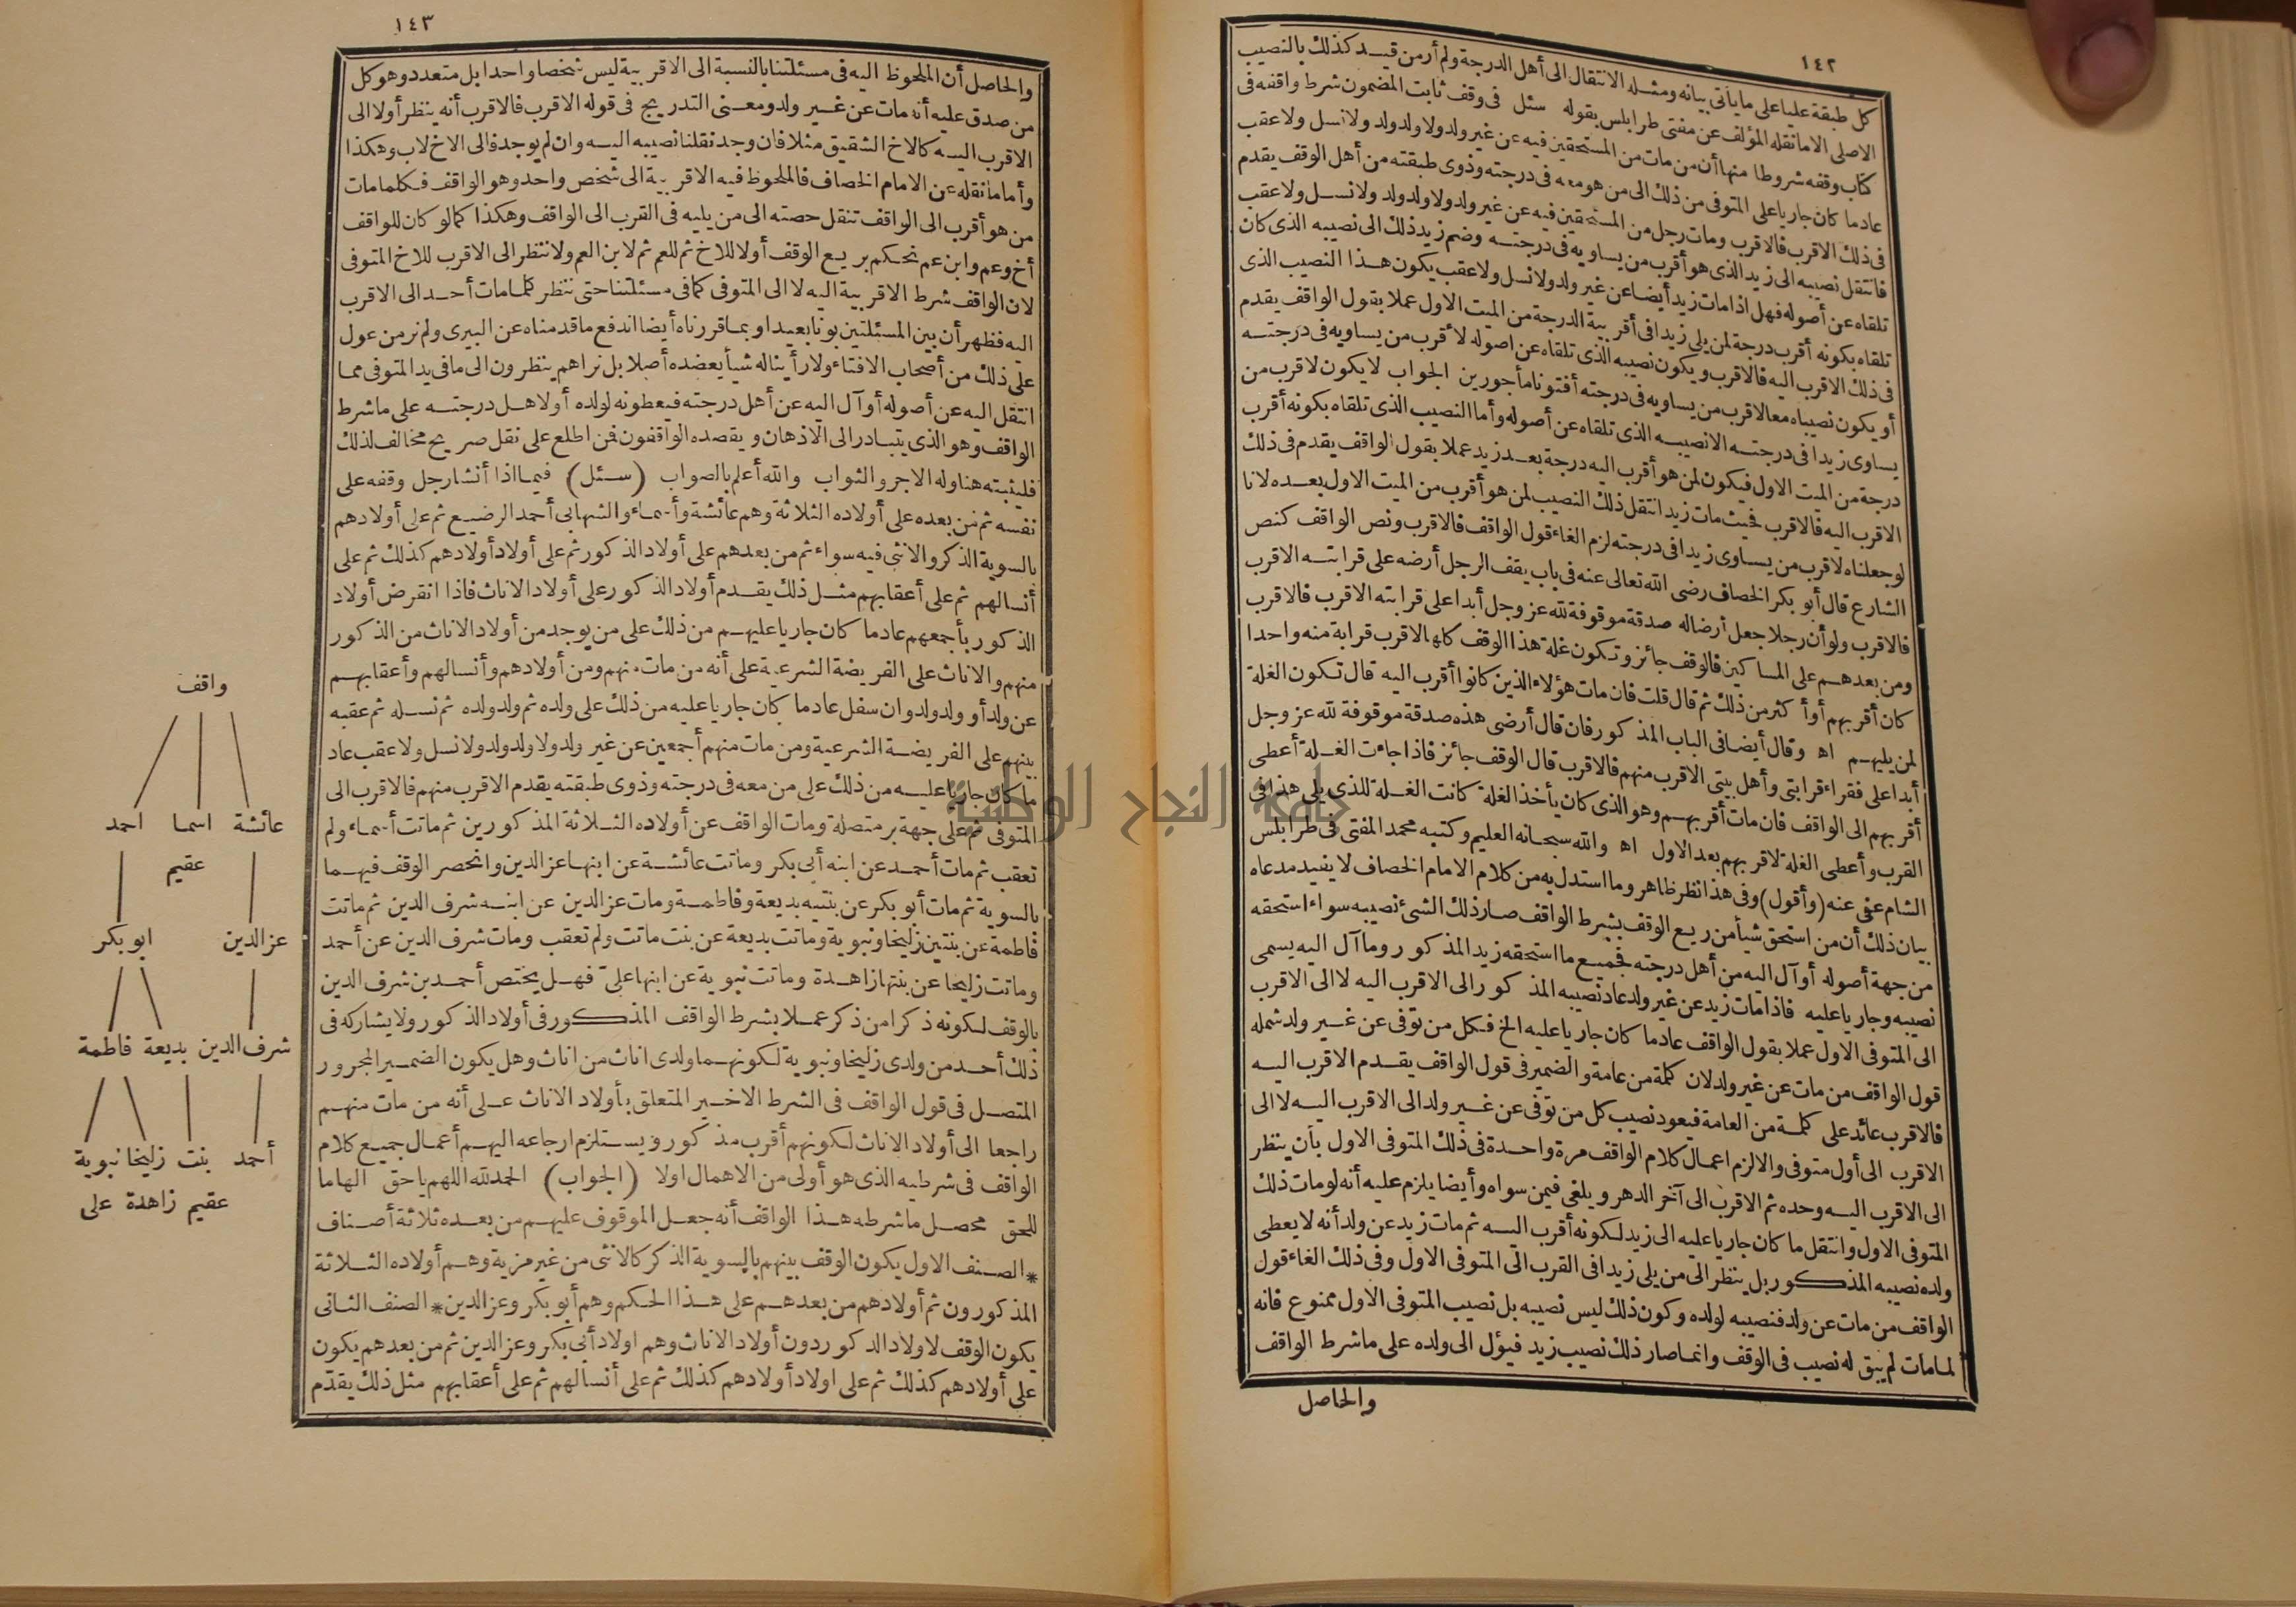 ١٤٢
كل طبقة عليا على ما يأتى بيانه ومثله الانتقال الى أهل الدرجة ولم أر من قيد كذلك بالنصيب
الاصلى الا ما نقله المؤلف عن مفتى طرابلس بقوله سئل فى وقف ثابت المضمون شرط واقفه فى
كتاب وقفه شروطا منها أن من مات من المستحقين فيه عن غير ولد ولا ولد ولد ولا نسل ولا عقب
عاد ما كان جاريا على المتوفى من ذلك الى من هو معه فى درجته وذوى طبقته من أهل الوقف يقدم
فى ذلك الاقرب فالاقرب ومات رجل من المستحقين فيه عن غير ولد ولا ولد ولد ولا نسل ولا عقب
فانتقل نصيبه الى زيد الذى هو أقرب من يساويه فى درجته وضم زيد ذلك الى نصيبه الذى كان
تلقاه عن أصوله فهل اذا مات زيد أيضا عن غير ولد ولا نسل ولا عقب يكون هذا النصيب الذى
تلقاه بكونه أقرب درجة لمن يلى زيدا فى أقربية الدرجة من الميت الاول عملا بقول الواقف يقدم
فى ذلك الاقرب اليه فالاقرب ويكون نصيبه الذى تلقاه عن اصوله لأقرب من يساويه فى درجته
أو يكون نصيباه معا لاقرب من يساويه فى درجته أفتونا مأجورين الجواب لا يكون لاقرب من
يساوى زيدا فى درجته الا نصيبه الذى تلقاه عن أصوله وأما النصيب الذى تلقاه بكونه أقرب
درجة من الميت الاول فيكون لمن هو أقرب اليه درجة بعد زيد عملا بقول الواقف يقدم فى ذلك
الاقرب اليه فالاقرب فحيث مات زيد انتقل ذلك النصيب لمن هو أقرب من الميت الاول بعده لانا
لو جعلناه لاقرب من يساوى زيدا فى درجته لزم الغاء قول الواقف فالاقرب ونص الواقف كنص
الشارع قال أبو بكر الخصاف رضى الله تعالى عنه فى باب يقف الرجل أرضه على قرابته الاقرب
فالاقرب ولو أن رجلا جعل أرضا له صدقة موقوفة لله عز وجل أبدا على قرابته الاقرب فالاقرب
ومن بعدهم على المساكين فالوقف جائز وتكون غلة هذا الوقف كلها لاقرب قرابة منه واحدا
كان أقربهم أو أكثر من ذلك ثم قال قلت فان مات هؤلاء الذين كانوا أقرب اليه قال تكون الغلة
لمن يليهم اه وقال أيضا فى الباب المذكور فان قال أرضى هذه صدقة موقوفة لله عز وجل
أبدا على فقراء قرابتى وأهل بيتى الاقرب منهم فالاقرب قال الوقف جائز فاذا جاءت الغلة أعطى
أقربهم الى الواقف فان مات أقربهم وهو الذى كان يأخذ الغلة كانت الغلة للذى يلى هذا فى
القرب وأعطى الغلة لاقربهم بعد الاول اه والله سبحانه العليم وكتبه محمد المفتى فى طرابلس
الشام عفى عنه (وأقول) وفى هذا نظر ظاهر وما استدل به من كلام الامام الخصاف لا يفيد مدعاه
بيان ذلك أن من استحق شيأ من ريع الوقف بشرط الواقف صار ذلك الشئ نصيبه سواء استحقه
من جهة أصوله أو آل اليه من أهل درجته فجميع ما استحقه زيد المذكور وما آل اليه يسمى
نصيبه وجاريا عليه فاذا مات زيد عن غير ولد عاد نصيبه المذكور الى الاقرب اليه لا الى الاقرب
الى المتوفى الاول عملا بقول الواقف عاد ما كان جاريا عليه الخ فكل من توفى عن غير ولد شمله
قول الواقف من مات عن غير ولد لان كلمة من عامة والضمير فى قول الواقف يقدم الاقرب اليه
فالاقرب عائد على كلمة من العامة فيعود نصيب كل من توفى عن غير ولد الى الاقرب اليه لا الى
الاقرب الى أول متوفى والا لزم اعمال كلام الواقف مرة واحدة فى ذلك المتوفى الاول بأن ينظر
الى الاقرب اليه وحده ثم الاقرب الى آخر الدهر ويلغى فيمن سواه وأيضا يلزم عليه أنه لو مات ذلك
المتوفى الاول وانتقل ما كان جاريا عليه الى زيد لكونه أقرب اليه ثم مات زيد عن ولد أنه لا يعطى
ولده نصيبه المذكور بل ينظر الى من يلى زيدا فى القرب الى المتوفى الاول وفى ذلك الغاء قول
الواقف من مات عن ولد فنصيبه لولده وكون ذلك ليس نصيبه بل نصيب المتوفى الاول ممنوع فانه
لما مات لم يبق له نصيب فى الوقف وانما صار ذلك نصيب زيد فيؤل الى ولده على ما شرط الواقف
والحاصل
١٤٣
والحاصل أن الملحوظ اليه فى مسئلتنا بالنسبة الى الاقربية ليس شخصا واحدا بل متعدد وهو كل
من صدق عليه أنه مات عن غير ولد ومعنى التدريج فى قوله الاقرب فالاقرب أنه ينظر أولا الى
الاقرب اليه كالاخ الشقيق مثلا فان وجد نقلنا نصيبه اليه وان لم يوجد فالى الاخ لاب وهكذا
وأما ما نقله عن الامام الخصاف فالملحوظ فيه الاقربية الى شخص واحد وهو الواقف فكلما مات
من هو أقرب الى الواقف تنقل حصته الى من يليه فى القرب الى الواقف وهكذا كما لو كان للواقف
أخ وعم وابن عم نحكم بريع الوقف أولا للاخ ثم للعم ثم لابن العم ولا ننتظر الى الاقرب للاخ المتوفى
لان الواقف شرط الاقربية اليه لا الى المتوفى كما فى مسئلتنا حتى ننتظر كلما مات أحد الى الاقرب
اليه فظهر أن بين المسئلتين بونا بعيدا وبما قررناه أيضا اندفع ما قدمناه عن البيرى ولم نر من عول
على ذلك من أصحاب الافتاء ولا رأينا له شيأ يعضده أصلا بل نراهم ينظرون الى ما فى يد المتوفى مما
انتقل اليه عن أصوله أو آل اليه عن أهل درجته فيعطونه لولده أو لاهل درجته على ما شرط
الواقف وهو الذى يتبادر الى الاذهان ويقصده الواقفون فمن اطلع على نقل صريح مخالف لذلك
فليثبته هنا وله الاجر والثواب والله أعلم بالصواب (سئل) فيما اذا أنشا رجل وقفه على
نفسه ثم من بعده على أولاده الثلاثة وهم عائشة وأسماء والشهابى أحمد الرضيع ثم على أولادهم
بالسوية الذكر والانثى فيه سواء ثم من بعدهم على أولاد الذكور ثم على أولاد أولادهم كذلك ثم على
أنسالهم ثم على أعقابهم مثل ذلك يقدم أولاد الذكور على أولاد الاناث فاذا انقرض أولاد
الذكور بأجمعهم عاد ما كان جاريا عليهم من ذلك على من يوجد من أولاد الاناث من الذكور
منهم والاناث على الفريضة الشرعية على أنه من مات منهم ومن أولادهم وأنسالهم وأعقابهم
عن ولد أو ولد ولد وان سفل عاد ما كان جاريا عليه من ذلك على ولده ثم ولد ولده ثم نسله ثم عقبه
بينهم على الفريضة الشرعية ومن مات منهم أجمعين عن غير ولد ولا ولد ولد ولا نسل ولا عقب عاد
ما كان جاريا عليه من ذلك على من معه فى درجته وذوى طبقته يقدم الاقرب منهم فالاقرب الى
المتوفى ثم على جهة بر متصلة ومات الواقف عن أولاده الثلاثة المذكورين ثم ماتت أسماء ولم
تعقب ثم مات أحمد عن ابنه أبى بكر وماتت عائشة عن ابنها عز الدين وانحصر الوقف فيهما
بالسوية ثم مات أبو بكر عن بنتيه بديعة وفاطمة ومات عز الدين عن ابنه شرف الدين ثم ماتت
فاطمة عن بنتين زليخا ونبوية وماتت بديعة عن بنت ماتت ولم تعقب ومات شرف الدين عن أحمد
وماتت زليخا عن بنتها زاهدة وماتت نبوية عن ابنها على فهل يختص أحمد بن شرف الدين
بالوقف لكونه ذكرا من ذكر عملا بشرط الواقف المذكور فى أولاد الذكور ولا يشاركه فى
ذلك أحد من ولدى زليخا ونبوية لكونهما ولدى اناث من اناث وهل يكون الضمير المجرور
المتصل فى قول الواقف فى الشرط الاخير المتعلق بأولاد الاناث على أنه من مات منهم
راجعا الى أولاد الاناث لكونهم أقرب مذكور ويستلزم ارجاعه اليهم أعمال جميع كلام
الواقف فى شرطيه الذى هو أولى من الاهمال اولا (الجواب) الحمد لله اللهم يا حق الهاما
للحق محصل ما شرطه هذا الواقف أنه جعل الموقوف عليهم من بعده ثلاثة أصناف
* الصنف الاول يكون الوقف بينهم بالسوية الذكر كالانثى من غير مزية وهم أولاده الثلاثة
المذكورون ثم أولادهم من بعدهم على هذا الحكم وهم أبو بكر وعز الدين * الصنف الثانى
يكون الوقف لاولاد الذكور دون أولاد الاناث وهم اولاد أبى بكر وعز الدين ثم من بعدهم يكون
على أولادهم كذلك ثم على اولاد أولادهم كذلك ثم على أنسالهم ثم على أعقابهم مثل ذلك يقدم
واقف
عائشة اسما احمد
عقيم
عز الدين ابو بكر
شرف الدين بديعة فاطمة
أحمد بنت زليخا نبوية
عقيم زاهدة على
جامعة النجاح الوطنية